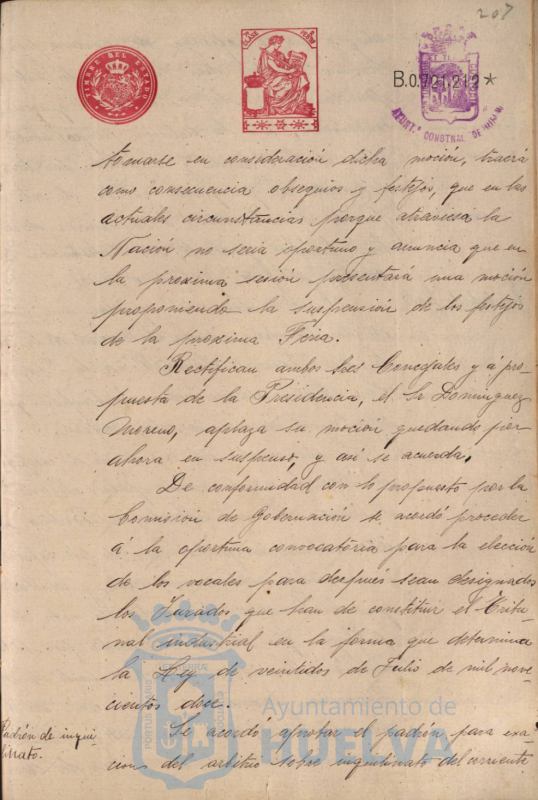 207
TIMBRE DEL ESTADO
B.0.721.212*
AYUNT.º CONSTNAL. DE HUELVA
tomarse en consideración dicha moción, traerá
como consecuencia obsequios y festejos, que en las
actuales circunstancias porque atraviesa la
Nación no seria oportuno y anuncia que en
la proxima sesión presentará una moción
proponiendo la suspensión de los festejos
de la proxima Feria.
Rectifican ambos Sres Concejales y á pro-
puesta de la Presidencia, el Sr Dominguez
Moreno, aplaza su moción quedando por
ahora en suspenso, y asi se acuerda.
De conformidad con lo propuesto por la
Comisión de Gobernación se acordó proceder
á la oportuna convocatoria para la elección
de los vocales para despues sean designados
los Jurados que han de constituir el Tribu-
nal industrial en la forma que determina
la Ley de veintidos de Julio de mil nove-
cientos doce.
Padrón de inqui-
linato.
Se acordó aprobar el padrón para exac-
cion del arbitrio sobre inquilinato del corriente
Ayuntamiento de
HUELVA